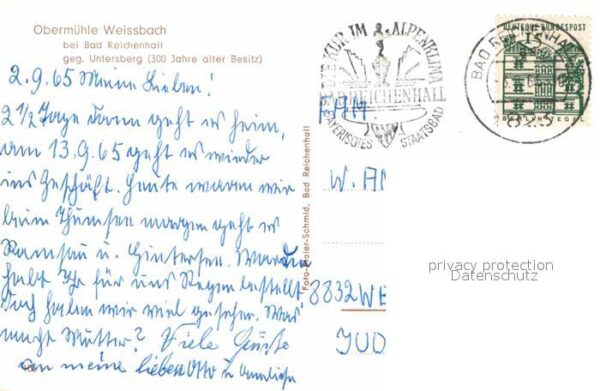 Obermühle Weissbach
bei Bad Reichenhall
geg. Untersberg (300 Jahre alter Besitz)
2.9.65 Meine Lieben!
2 1/2 Tage dann geht es heim,
am 13.9.65 geht es wieder
ins Geschäft. Heute waren wir
beim Thumsee morgen geht es
Ramsau u. Hintersee. Warum
habt Ihr für uns Regen bestellt.
Doch haben wir viel gesehen. Was
macht Mutter? Viele Grüße
an meine lieben Otto u.
KUR IM ALPENKLIMA
BAD REICHENHALL
BAYERISCHES STAATSBAD
DEUTSCHE BUNDESPOST
15
BAD REICHENHALL
FAM.
W.
8832 WE
Foto-Baier-Schmid, Bad Reichenhall
privacy protection
Datenschutz